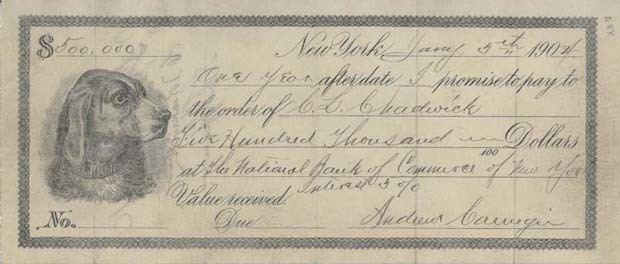 $500,000 New York Jany 5th 1904
One year after date I promise to pay to
the order of C. L. Chadwick
Five Hundred Thousand Dollars
100
at The National Bank of Commerce of New York
Interest 5 %
Value received.
No. Due Andrew Carnegie